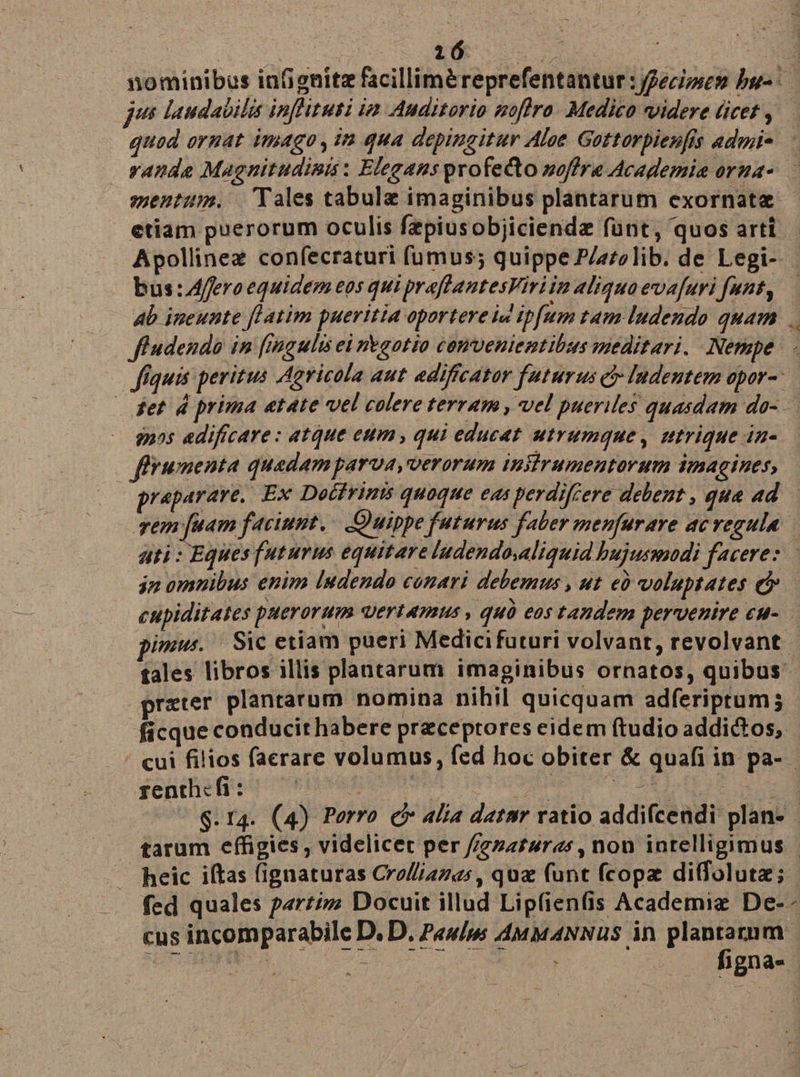 16
nominibus inſignitæ facillimè repreſentantur: ſpecimen hu-
jus laudabilis inſtituti in Auditorio noſtro Medico videre licet,
quod ornat imago, in qua depingitur Aloe Gottorpienſis admi-
randæ Magnitudinis: Elegans profecto noſtræ Academiæ orna-
mentum. Tales tabulæ imaginibus plantarum exornatæ
etiam puerorum oculis ſæpius objiciendæ ſunt, quos arti
Apollineæ conſecraturi ſumus; quippe Plato lib. de Legi-
bus: Aſſero equidem eos qui præſtantes Viri in aliquo evaſuri ſunt,
ab ineunte ſtatim pueritia oportere id ipſum tam ludendo quam
ſtudendo in ſingulis ei negotio convenientibus meditari. Nempe
ſiquis peritus Agricola aut ædificator futurus & ludentem opor-
tet à prima ætate vel colere terram, vel pueriles quasdam do-
mos ædificare: atque eum, qui educat utrumque, utrique in-
ſtrumenta quædam parva, verorum inſtrumentorum imagines,
præparare. Ex Doctrinis quoque eas perdiſcere debent, quæ ad
rem ſuam faciunt. Quippe futurus faber menſurare ac regula
uti: Eques futurus equitare ludendo, aliquid hujusmodi facere:
in omnibus enim ludendo conari debemus, ut eò voluptates &
cupiditates puerorum vertamus, quò eos tandem pervenire cu-
pimus. Sic etiam pueri Medici futuri volvant, revolvant
tales libros illis plantarum imaginibus ornatos, quibus
præter plantarum nomina nihil quicquam adſcriptum;
ſicque conducit habere præceptores eidem ſtudio addictos,
cui filios ſacrare volumus, ſed hoc obiter & quaſi in pa-
rentheſi:
§. 14. (4) Porro & alia datur ratio addiſcendi plan-
tarum effigies, videlicet per ſignaturas, non intelligimus
heic iſtas ſignaturas Crollianas, quæ ſunt ſcopæ diſſolutæ;
ſed quales partim Docuit illud Lipſienſis Academiæ De-
cus incomparabile D. D. Paulus AMMANNUS in plantarum
ſigna-